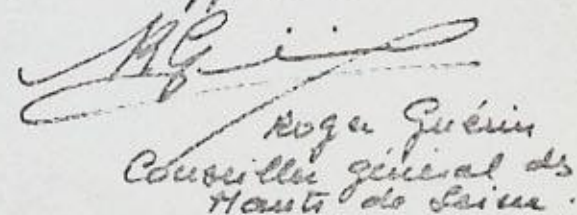 Roger Guérin
Conseiller général des
Hauts de Seine.